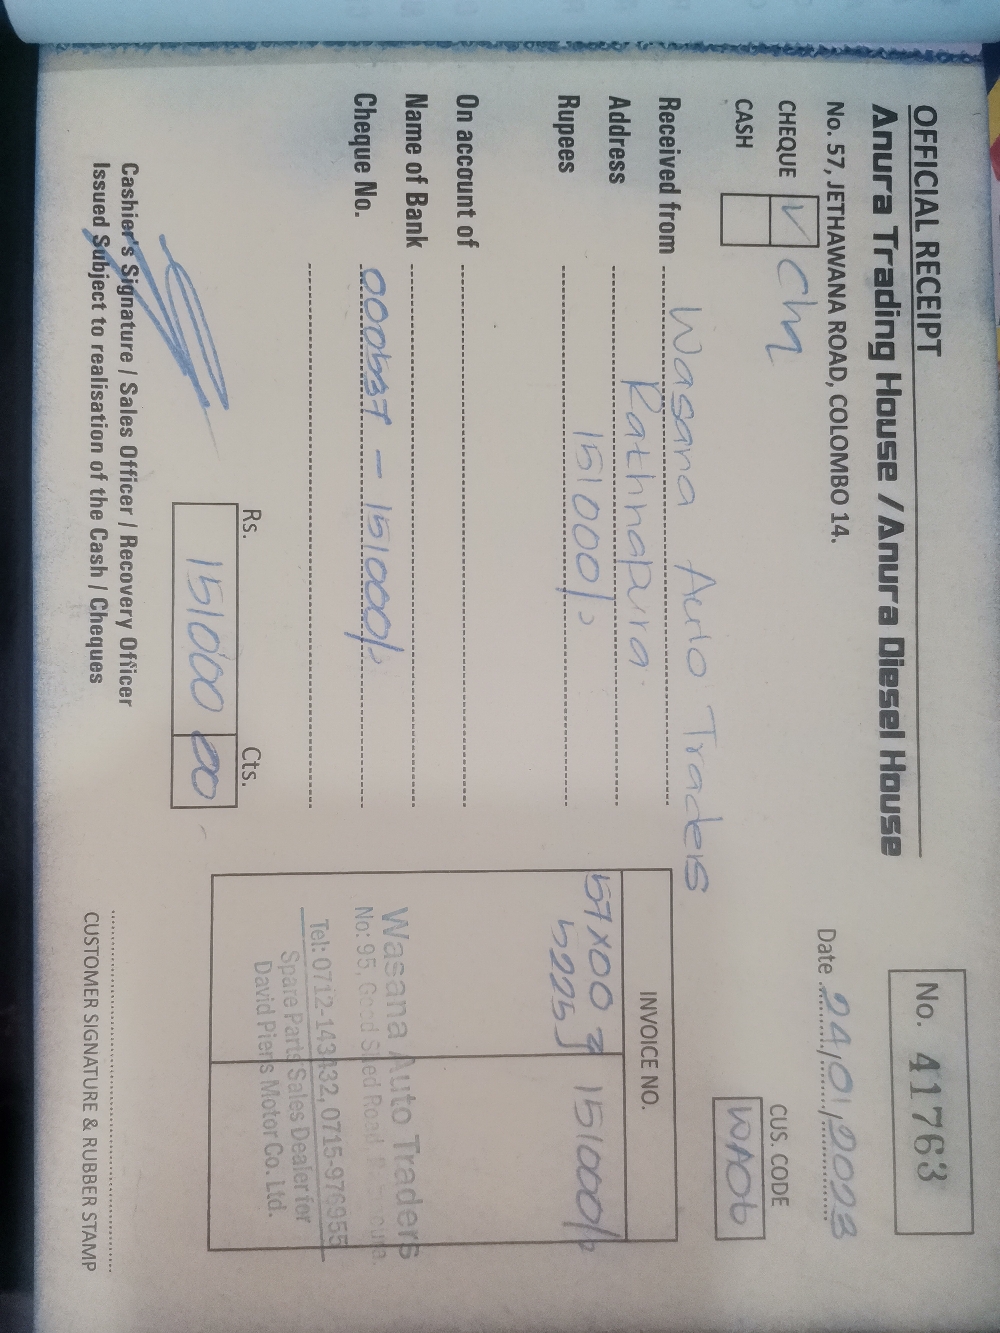 OFFICIAL RECEIPT
Anura Trading House / Anura Diesel House
No. 57, JETHAWANA ROAD, COLOMBO 14.
No. 41763
Date 24/01/2023
CHEQUE
CASH
CUS. CODE
WA06
Received from Wasana Auto Traders
Address Rathnapura.
Rupees 151000/=
On account of
Name of Bank
Cheque No. 000537 - 151000/=
INVOICE NO.
5225 151000/=
Wasana Auto Traders
No: 95, Good Shed Road
Tel: 0712-143432, 0715-976955
Spare Parts Sales Dealer for
David Piers Motor Co. Ltd.
Rs. Cts.
151000 00
Cashier's Signature / Sales Officer / Recovery Officer
Issued Subject to realisation of the Cash / Cheques
CUSTOMER SIGNATURE & RUBBER STAMP